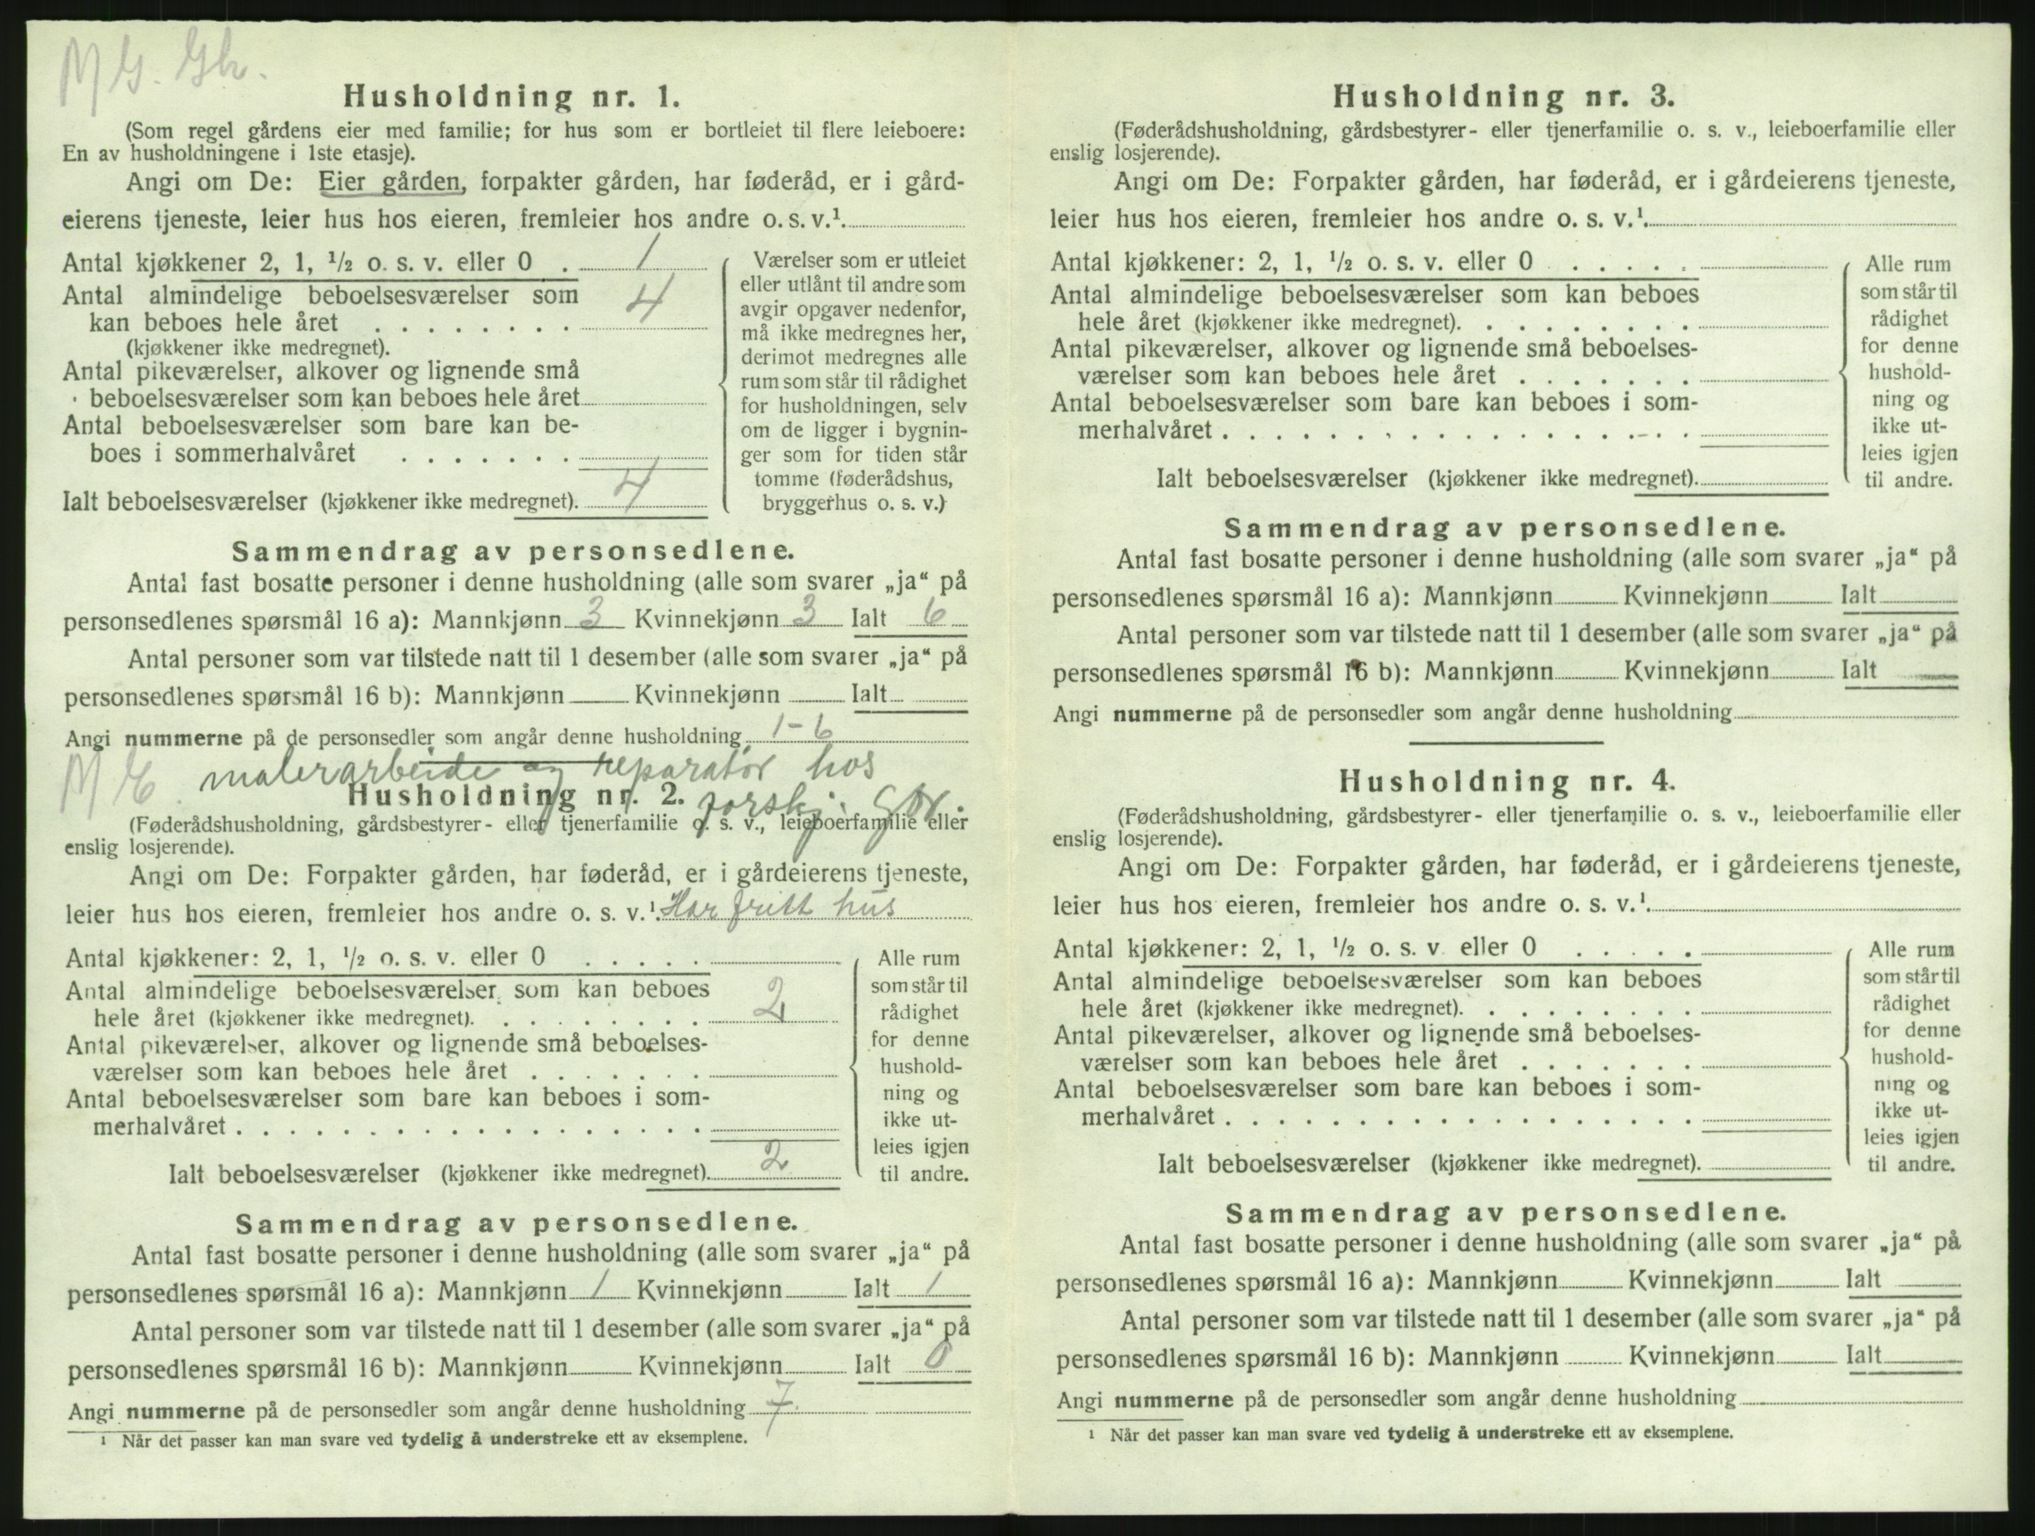 M G. Gh.
Husholdning nr. 1.
(Som regel gårdens eier med familie; for hus som er bortleiet til flere leieboere:
En av husholdningene i 1ste etasje).
Angi om De: Eier gården, forpakter gården, har føderåd, er i gård-
eierens tjeneste, leier hus hos eieren, fremleier hos andre o. s. v.¹
Antal kjøkkener 2, 1, ½ o. s. v. eller 0 . 1
Antal almindelige beboelsesværelser som
kan beboes hele året . . . . . . . . 4
(kjøkkener ikke medregnet).
Antal pikeværelser, alkover og lignende små
beboelsesværelser som kan beboes hele året
Antal beboelsesværelser som bare kan be-
boes i sommerhalvåret . . . . . . .
Ialt beboelsesværelser (kjøkkener ikke medregnet). 4
Værelser som er utleiet
eller utlånt til andre som
avgir opgaver nedenfor,
må ikke medregnes her,
derimot medregnes alle
rum som står til rådighet
for husholdningen, selv
om de ligger i bygnin-
ger som for tiden står
tomme (føderådshus,
bryggerhus o. s. v.)
Sammendrag av personsedlene.
Antal fast bosatte personer i denne husholdning (alle som svarer „ja“ på
personsedlenes spørsmål 16 a): Mannkjønn 3 Kvinnekjønn 3 Ialt 6
Antal personer som var tilstede natt til 1 desember (alle som svarer „ja“ på
personsedlenes spørsmål 16 b): Mannkjønn Kvinnekjønn Ialt
Angi nummerne på de personsedler som angår denne husholdning 1-6
M E. malerarbeide og reparatør hos
Husholdning nr. 2. forskj. gdr.
(Føderådshusholdning, gårdsbestyrer- eller tjenerfamilie o. s. v., leieboerfamilie eller
enslig losjerende).
Angi om De: Forpakter gården, har føderåd, er i gårdeierens tjeneste,
leier hus hos eieren, fremleier hos andre o. s. v.¹ Har fritt hus
Antal kjøkkener: 2, 1, ½ o. s. v. eller 0 . . . . .
Antal almindelige beboelsesværelser som kan beboes
hele året (kjøkkener ikke medregnet). . . . . . . . . 2
Antal pikeværelser, alkover og lignende små beboelses-
værelser som kan beboes hele året . . . . . . .
Antal beboelsesværelser som bare kan beboes i som-
merhalvåret . . . . . . . . . . . . . . . . . .
Ialt beboelsesværelser (kjøkkener ikke medregnet). 2
Alle rum
som står til
rådighet
for denne
hushold-
ning og
ikke ut-
leies igjen
til andre.
Sammendrag av personsedlene.
Antal fast bosatte personer i denne husholdning (alle som svarer „ja“ på
personsedlenes spørsmål 16 a): Mannkjønn 1 Kvinnekjønn Ialt 1
Antal personer som var tilstede natt til 1 desember (alle som svarer „ja“ på
personsedlenes spørsmål 16 b): Mannkjønn Kvinnekjønn Ialt 0
Angi nummerne på de personsedler som angår denne husholdning 7.
¹ Når det passer kan man svare ved tydelig å understreke ett av eksemplene.
Husholdning nr. 3.
(Føderådshusholdning, gårdsbestyrer- eller tjenerfamilie o. s. v., leieboerfamilie eller
enslig losjerende).
Angi om De: Forpakter gården, har føderåd, er i gårdeierens tjeneste,
leier hus hos eieren, fremleier hos andre o. s. v.¹
Antal kjøkkener: 2, 1, ½ o. s. v. eller 0 . . . . .
Antal almindelige beboelsesværelser som kan beboes
hele året (kjøkkener ikke medregnet). . . . . . . . .
Antal pikeværelser, alkover og lignende små beboelses-
værelser som kan beboes hele året . . . . . . .
Antal beboelsesværelser som bare kan beboes i som-
merhalvåret . . . . . . . . . . . . . . . . . .
Ialt beboelsesværelser (kjøkkener ikke medregnet).
Alle rum
som står til
rådighet
for denne
hushold-
ning og
ikke ut-
leies igjen
til andre.
Sammendrag av personsedlene.
Antal fast bosatte personer i denne husholdning (alle som svarer „ja“ på
personsedlenes spørsmål 16 a): Mannkjønn Kvinnekjønn Ialt
Antal personer som var tilstede natt til 1 desember (alle som svarer „ja“ på
personsedlenes spørsmål 16 b): Mannkjønn Kvinnekjønn Ialt
Angi nummerne på de personsedler som angår denne husholdning
Husholdning nr. 4.
(Føderådshusholdning, gårdsbestyrer- eller tjenerfamilie o. s. v., leieboerfamilie eller
enslig losjerende).
Angi om De: Forpakter gården, har føderåd, er i gårdeierens tjeneste,
leier hus hos eieren, fremleier hos andre o. s. v.¹
Antal kjøkkener: 2, 1, ½ o. s. v. eller 0 . . . . .
Antal almindelige beboelsesværelser som kan beboes
hele året (kjøkkener ikke medregnet). . . . . . . . .
Antal pikeværelser, alkover og lignende små beboelses-
værelser som kan beboes hele året . . . . . . .
Antal beboelsesværelser som bare kan beboes i som-
merhalvåret . . . . . . . . . . . . . . . . . .
Ialt beboelsesværelser (kjøkkener ikke medregnet).
Alle rum
som står til
rådighet
for denne
hushold-
ning og
ikke ut-
leies igjen
til andre.
Sammendrag av personsedlene.
Antal fast bosatte personer i denne husholdning (alle som svarer „ja“ på
personsedlenes spørsmål 16 a): Mannkjønn Kvinnekjønn Ialt
Antal personer som var tilstede natt til 1 desember (alle som svarer „ja“ på
personsedlenes spørsmål 16 b): Mannkjønn Kvinnekjønn Ialt
Angi nummerne på de personsedler som angår denne husholdning
¹ Når det passer kan man svare ved tydelig å understreke ett av eksemplene.